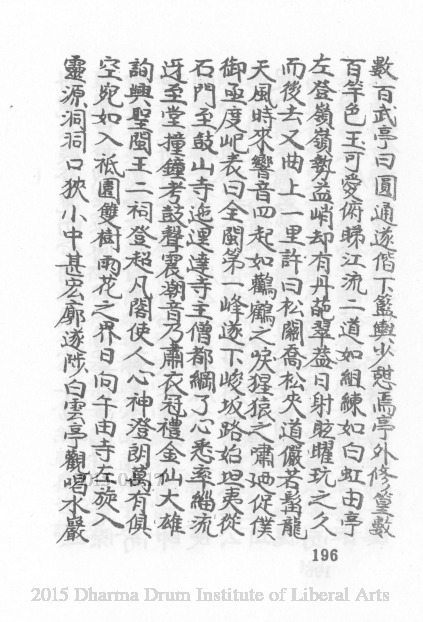 數百武亭曰圓通遂偕下籃輿少憩焉亭外修篁數
百竿色玉可愛俯睇江流二道如組練如白虹由亭
左登嶺嶺勢益峭却有丹葩翠蓋日射眩曜玩之久
而後去又曲上一里許曰松關喬松夾道儼若髯龍
天風時來響音四起如鸛鶴之唳猩猿之嘯迺從僕
御亟度屺表曰全閩第一峰遂下峻坂路始坦夷從
石門至鼓山寺迤邐達寺王僧都綱了心悉率緇流
迓至堂撞鐘考鼓聲震潮音乃肅衣冠禮金仙大雄
詢興聖閩王二祠登超凡閣使人心神澄朗萬有俱
空宛如入祇園雙樹雨花之界日向午由寺左旋入
靈源洞洞口狹小中甚宏廓遂陟白雲亭觀喝水巖
196
2015 Dharma Drum Institute of Liberal Arts